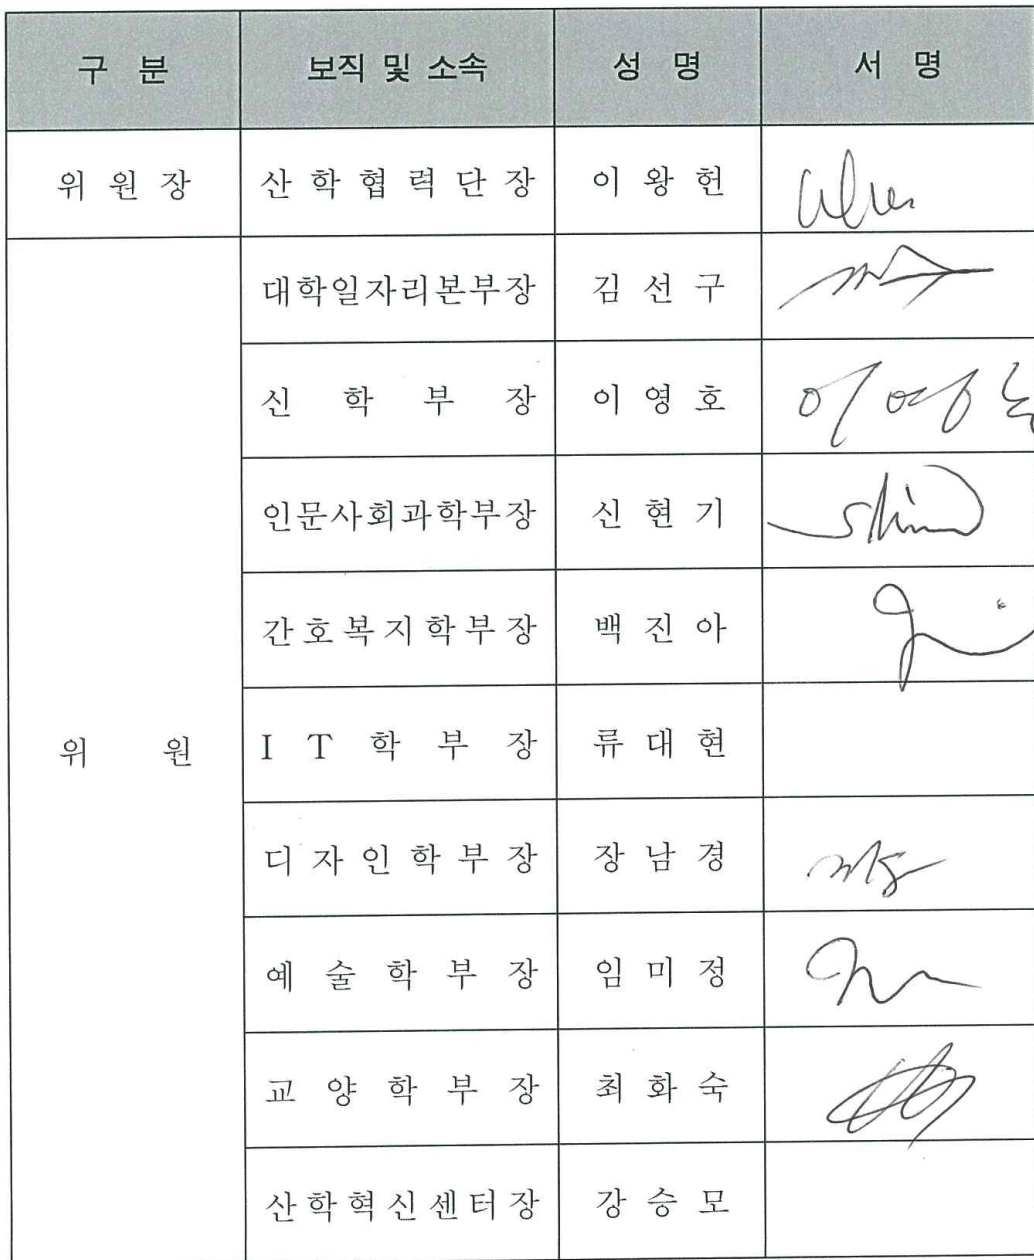 구 분 보직 및 소속 성 명 서 명
위 원 장 산 학 협 력 단 장 이 왕 헌
대학일자리본부장 김 선 구
신 학 부 장 이 영 호 이영호
인문사회과학부장 신 현 기 shin
간호복지학부장 백 진 아
위 원 I T 학 부 장 류 대 현
디 자 인 학 부 장 장 남 경
예 술 학 부 장 임 미 정
교 양 학 부 장 최 화 숙
산학혁신센터장 강 승 모